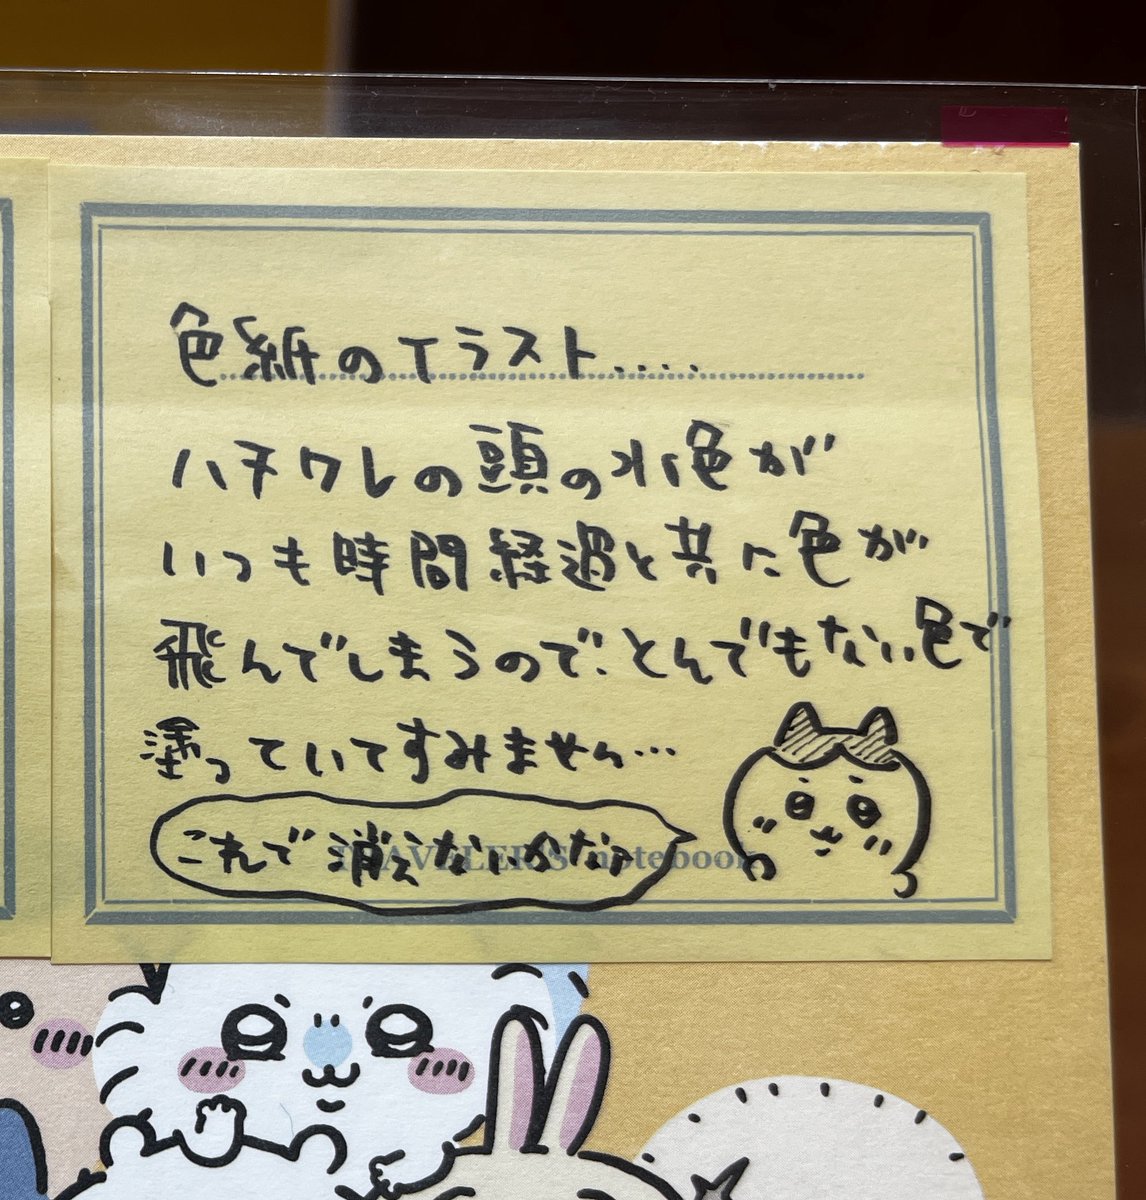 色紙のイラスト.....
ハチワレの頭の水色が
いつも時間経過と共に色が
飛んでしまうので、とんでもない色で
塗っていてすみません…
これで消えないかなァ
TRAVELER'S notebook